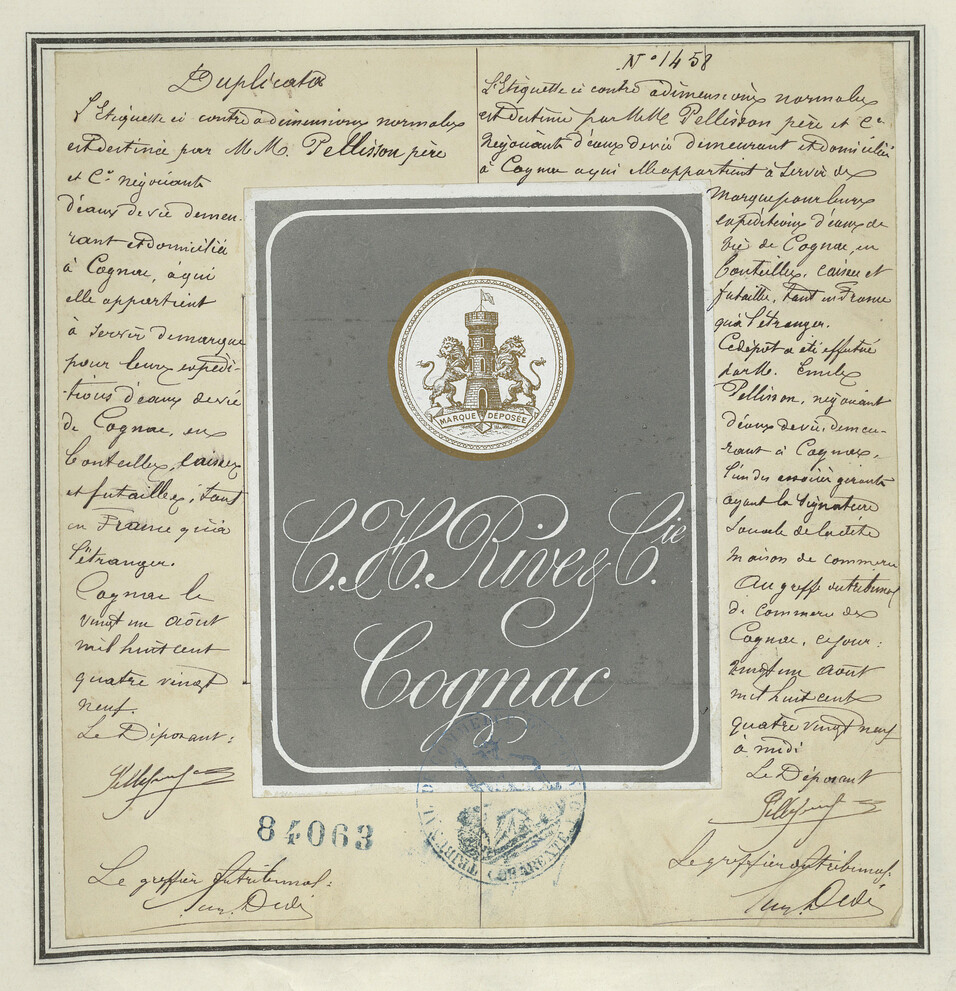 Duplicata
L'Etiquette ci contre a dimensions normales
est destinée par MM. Pellisson père
et Cie négociants
d'eaux de vie demeu-
rant et domicilié
à Cognac, à qui
elle appartient
à servir de marque
pour leurs expédi-
-tions d'eaux de vie
de Cognac, en
bouteilles, caisses
et futailles, tant
en France qu'à
l'étranger.
Cognac le
vingt un août
mil huit cent
quatre vingt
neuf.
Le Déposant:
84063
Le greffier du tribunal:
N° 1458
L'Etiquette ci contre a dimensions normales
est destinée par MM Pellisson père et Cie
Négociants d'eaux de vie demeurant et domicilié
à Cognac à qui elle appartient à servir de
marque pour leurs
expéditions d'eaux de
vie de Cognac, en
bouteilles, caisses et
futaille, tant en France
qu'à l'étranger.
Ce dépôt a été effectué
par M. Emile
Pellisson, négociant
d'eaux de vie, demeu-
rant à Cognac,
l'un des associés gérants
ayant la signature
sociale de la dite
maison de commerce
Au greffe du tribunal
de commerce de
Cognac, ce jour:
vingt un août
mil huit cent
quatre vingt neuf
à midi
Le Déposant
Le greffier du tribunal:
MARQUE DÉPOSÉE
C. H. Rive & Cie
Cognac
CHARENTE